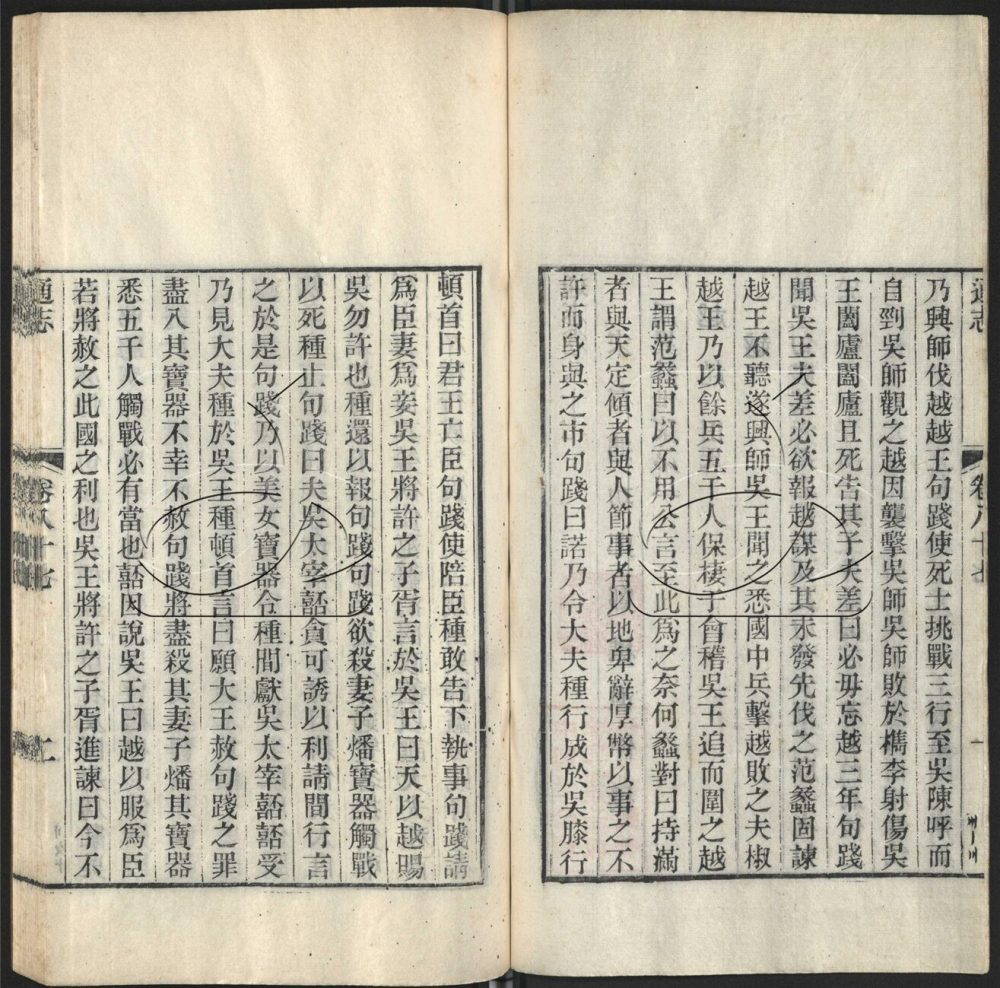 通志
卷八十七
一
乃興師伐越越王句踐使死士挑戰三行至吳陳呼而
自剄吳師觀之越因襲擊吳師吳師敗於檇李射傷吳
王闔廬闔廬且死告其子夫差曰必毋忘越三年句踐
聞吳王夫差必欲報越謀及其未發先伐之范蠡固諫
越王不聽遂興師吳王聞之悉國中兵擊越敗之夫椒
越王乃以餘兵五千人保棲于會稽吳王追而圍之越
王謂范蠡曰以不用公言至此爲之奈何蠡對曰持滿
者與天定傾者與人節事者以地卑辭厚幣以事之不
許而身與之市句踐曰諾乃令大夫種行成於吳膝行
頓首曰君王亡臣句踐使陪臣種敢告下執事句踐請
爲臣妻爲妾吳王將許之子胥言於吳王曰天以越賜
吳勿許也種還以報句踐句踐欲殺妻子燔寶器觸戰
以死種止句踐曰夫吳太宰嚭貪可誘以利請間行言
之於是句踐乃以美女寶器令種間獻吳太宰嚭嚭受
乃見大夫種於吳王種頓首言曰願大王赦句踐之罪
盡入其寶器不幸不赦句踐將盡殺其妻子燔其寶器
悉五千人觸戰必有當也嚭因說吳王曰越以服爲臣
若將赦之此國之利也吳王將許之子胥進諫曰今不
通志
卷八十七